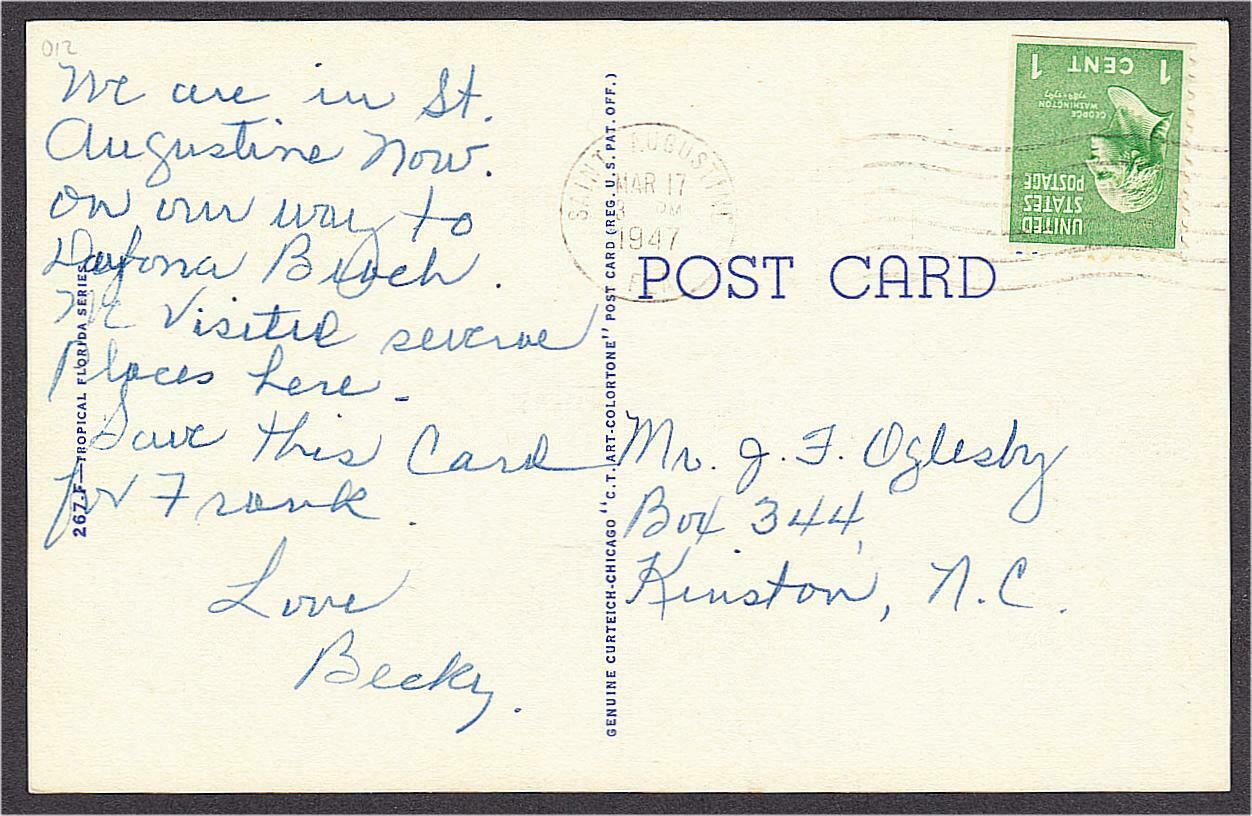 012
We are in St.
Augustine Now.
on our way to
Daytona Beach.
We Visited severae
Places here.
Save this Card
for Frank.
Love
Becky.
267 F—TROPICAL FLORIDA SERIES
GENUINE CURTEICH-CHICAGO "C.T. ART-COLORTONE" POST CARD (REG. U.S. PAT. OFF.)
SAINT AUGUSTINE
MAR 17
3 PM
1947
FLA
POST CARD
1 CENT 1
GEORGE
WASHINGTON
1789-1797
UNITED
STATES
POSTAGE
Mr. J. F. Oglesby
Box 344,
Kinston, N.C.